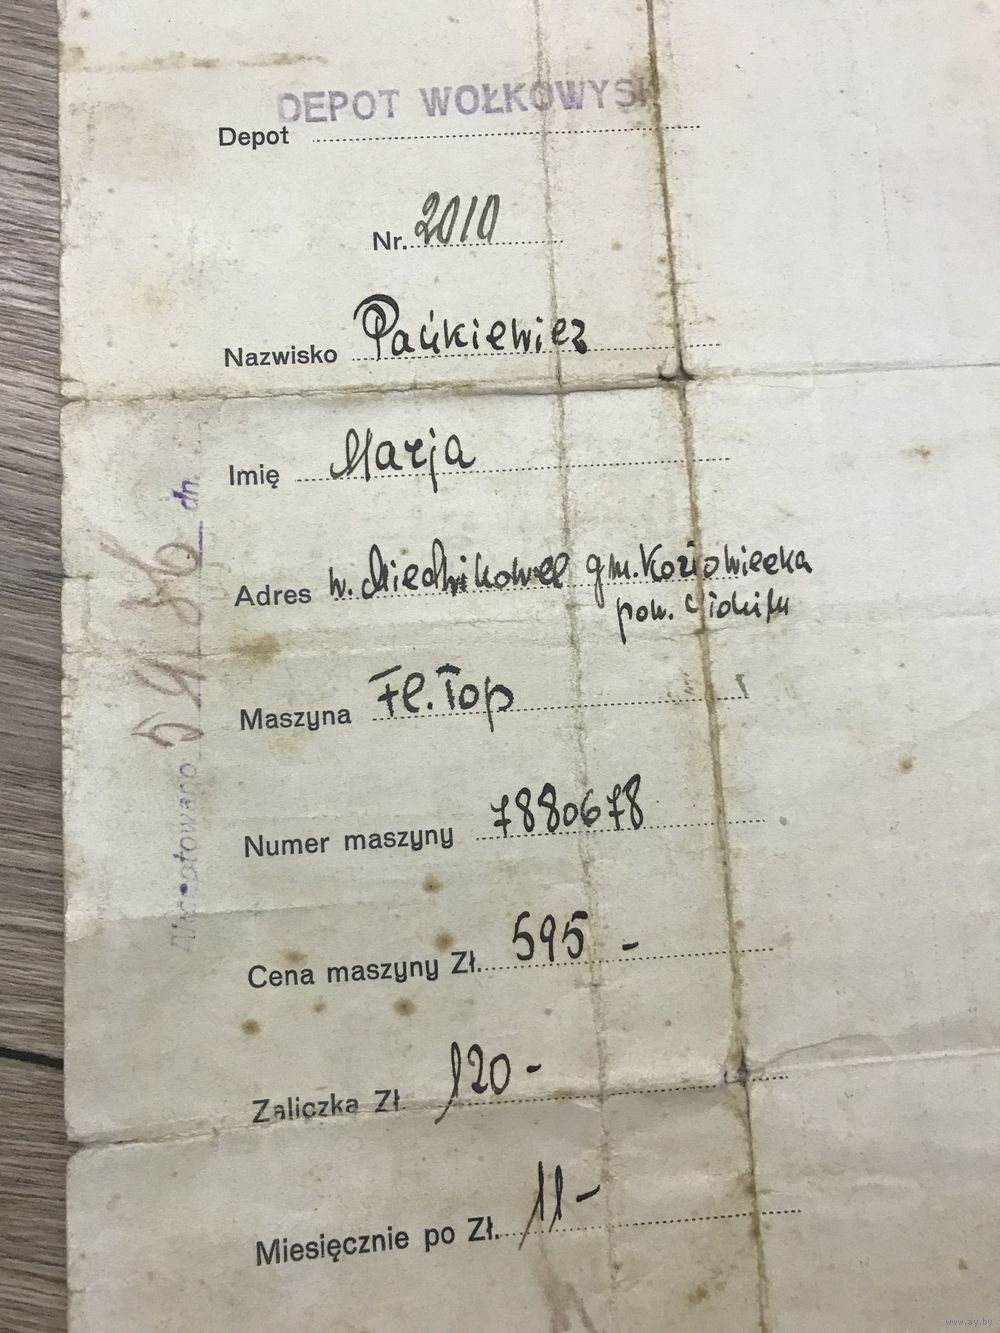 DEPOT WOŁKOWYSK
Depot
Nr. 2010
Nazwisko Pańkiewicz
Imię Marja
Adres w. Miednikowce gm.
pow.
Maszyna Fl. Top
Numer maszyny 7880678
Cena maszyny Zł. 595 -
Zaliczka Zł 120 -
Miesięcznie po Zł. 11 -
dn.
www.ay.by